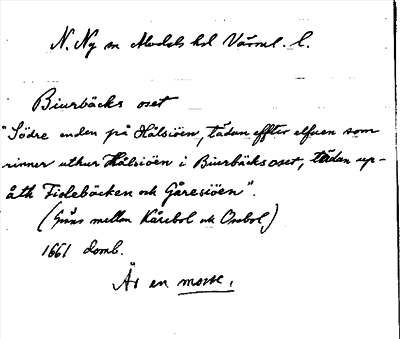 N. Ny sn Älvdals hd Värml. l.
Biurbäcks oset
"Södre enden på Hälsiöen, tädan effter elfuen som
rinner uthur Hälsiöen i Biurbäcks oset, tädan up-
åth Fidebäcken och Gåresiöen".
(Gräns mellan Kårebol och Osebol)
1661 domb.
Är en mosse.